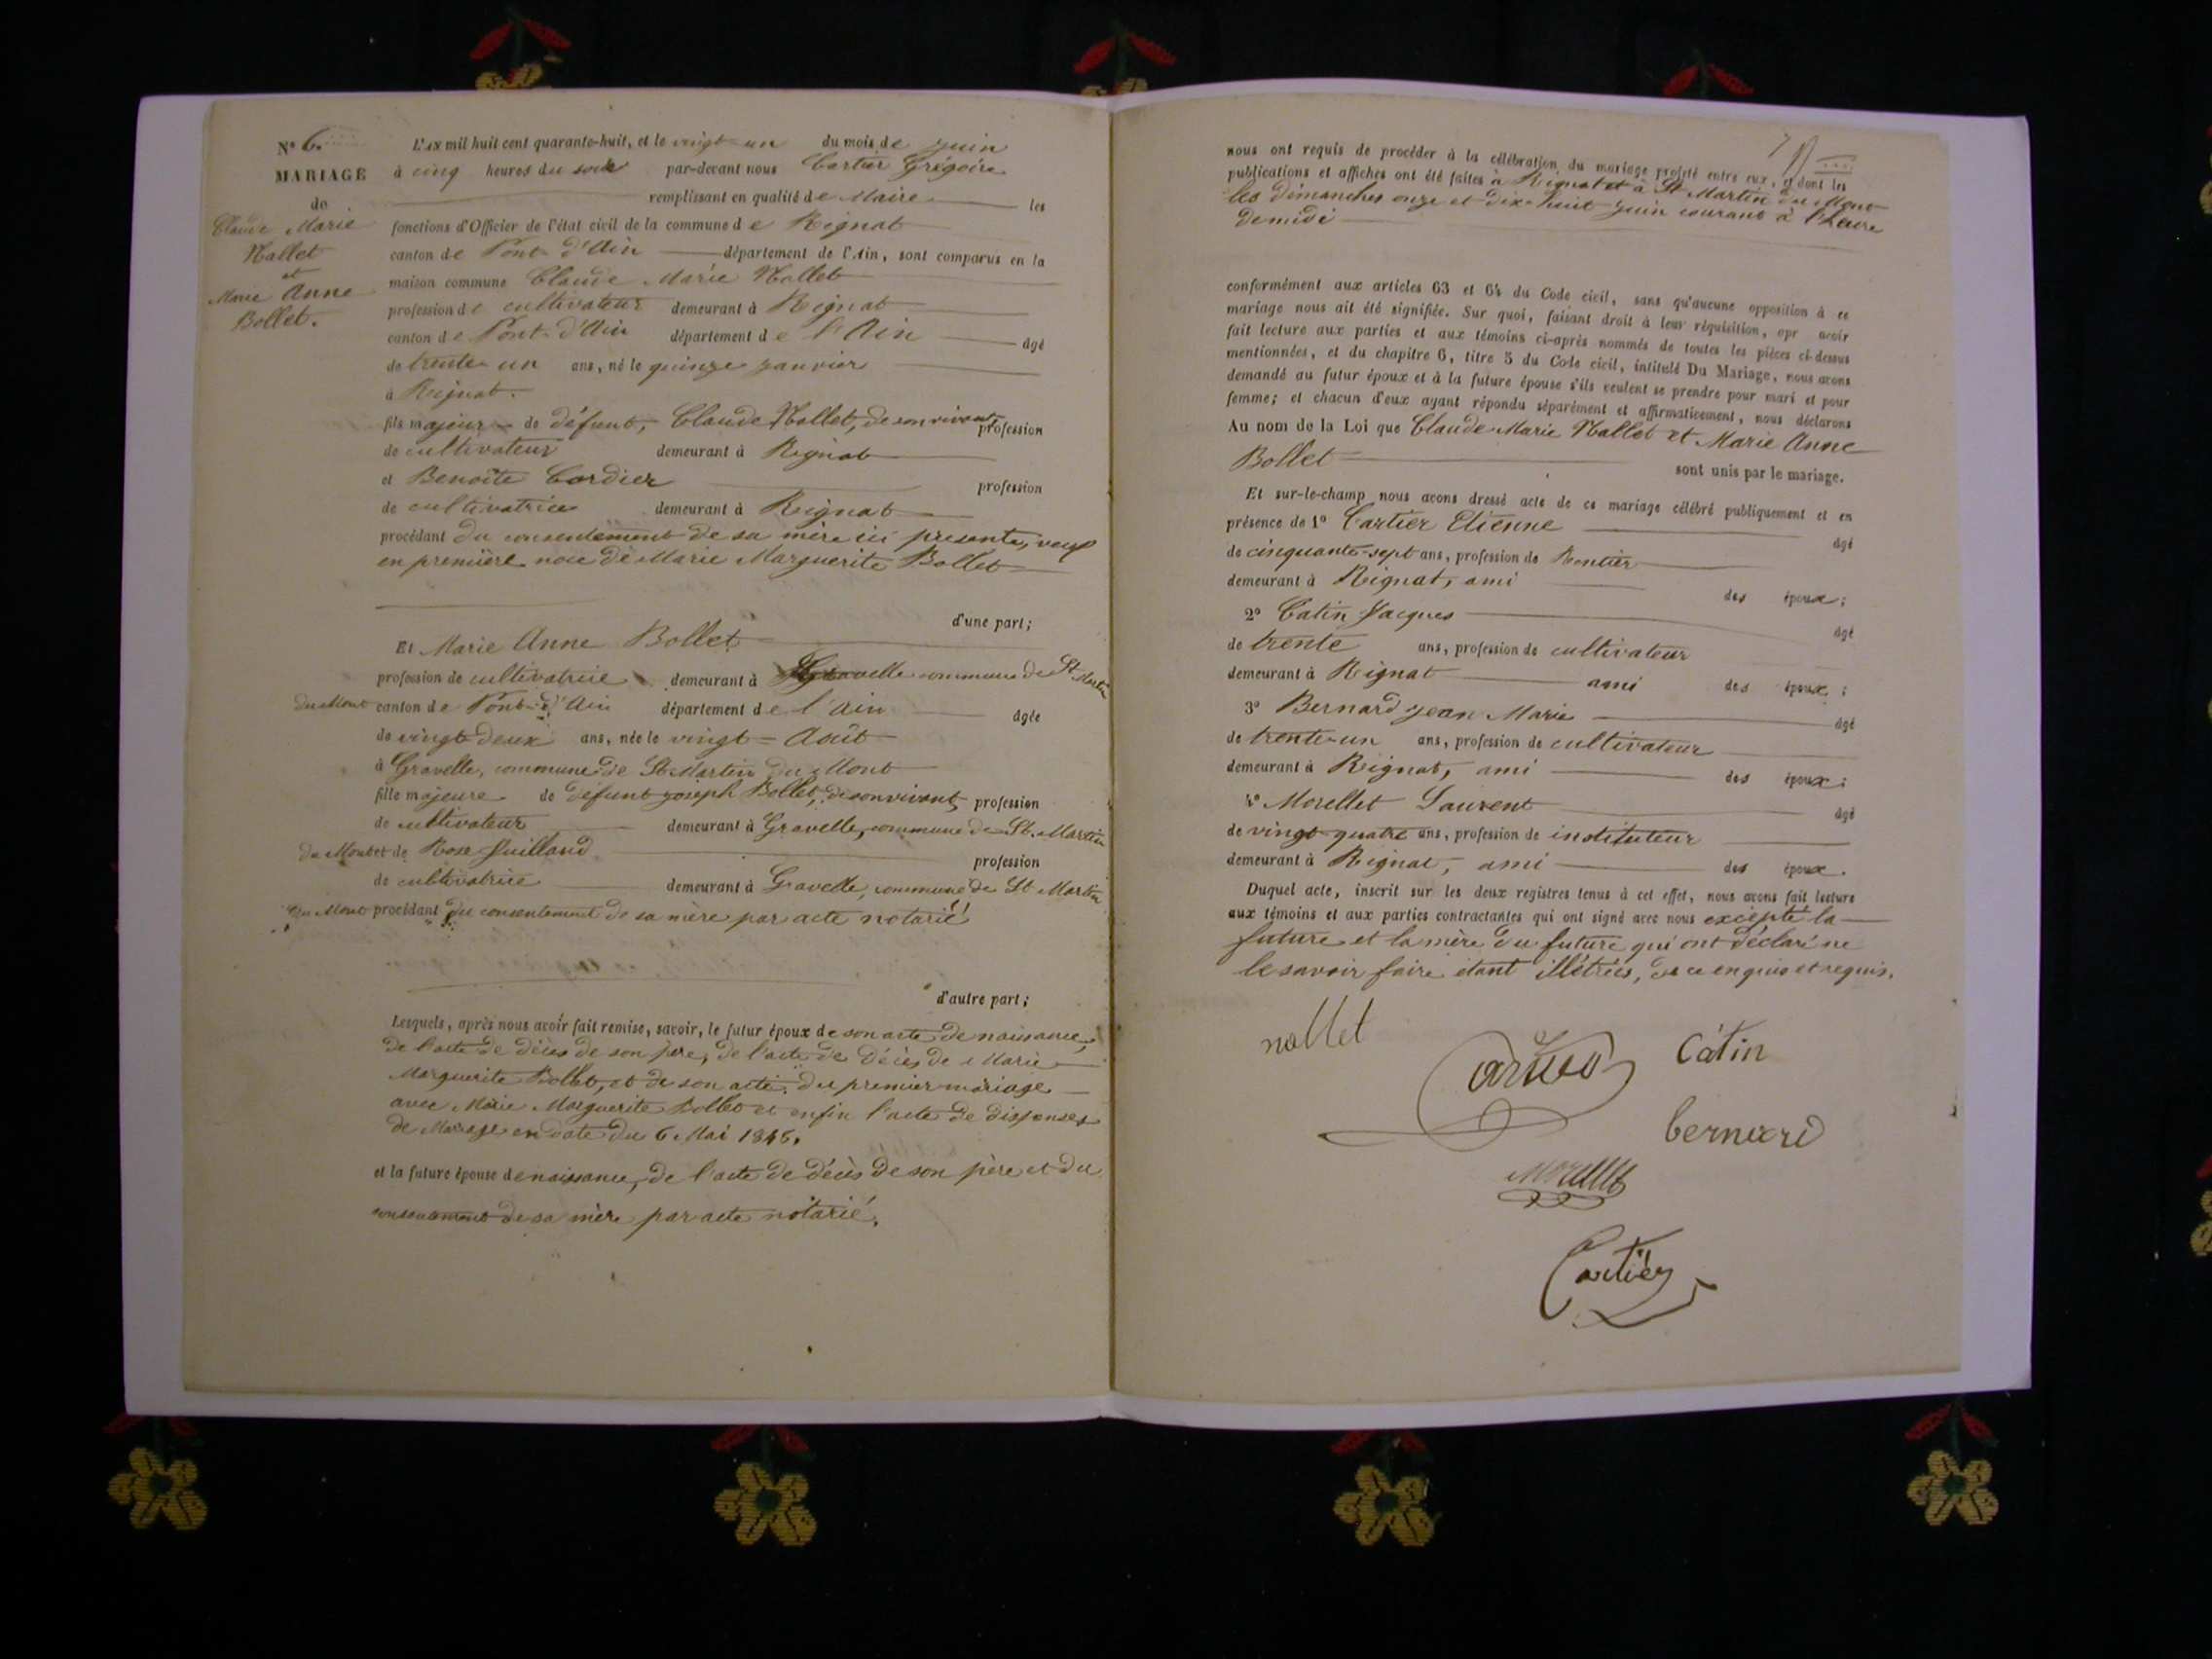 N° 6.
MARIAGE
de
Claude Marie
Nallet
et
Marie Anne
Bollet.
L'an mil huit cent quarante-huit, et le vingt-un du mois de juin
à cinq heures du soir par-devant nous Cartier Grégoire
remplissant en qualité de Maire les
fonctions d'Officier de l'état civil de la commune de Rignat
canton de Pont-d'Ain département de l'Ain, sont comparus en la
maison commune Claude Marie Nallet
profession de cultivateur demeurant à Rignat
canton de Pont-d'Ain département de l'Ain âgé
de trente-un ans, né le quinze janvier
à Rignat.
fils majeur de défunt, Claude Nallet, de son vivant, profession
de cultivateur demeurant à Rignat
et Benoîte Cordier profession
de cultivatrice demeurant à Rignat
procédant du consentement de sa mère ici présente, veuf
en première noce de Marie Marguerite Bollet
d'une part;
Et Marie Anne Bollet
profession de cultivatrice demeurant à Gravelle commune de St Martin
du Mont canton de Pont-d'Ain département de l'Ain âgée
de vingt-deux ans, née le vingt Août
à Gravelle, commune de St Martin du Mont
fille majeure de défunt joseph Bollet, de son vivant, profession
de cultivateur demeurant à Gravelle, commune de St. Martin
du Mont et de Rose Juilland profession
de cultivatrice demeurant à Gravelle, commune de St Martin
du Mont procédant du consentement de sa mère par acte notarié
d'autre part;
Lesquels, après nous avoir fait remise, savoir, le futur époux de son acte de naissance,
de l'acte de décès de son père, de l'acte de décès de Marie
Marguerite Bollet, et de son acte du premier mariage
avec Marie Marguerite Bollet et enfin l'acte de dispenses
de Mariage en date du 6 Mai 1848.
et la future épouse de naissance, de l'acte de décès de son père et du
consentement de sa mère par acte notarié.
7
nous ont requis de procéder à la célébration du mariage projeté entre eux, et dont les
publications et affiches ont été faites à Rignat et à St Martin du Mont
les dimanches onze et dix-huit juin courant à l'heure
de midi
conformément aux articles 63 et 64 du Code civil, sans qu'aucune opposition à ce
mariage nous ait été signifiée. Sur quoi, faisant droit à leur réquisition, apr avoir
fait lecture aux parties et aux témoins ci-après nommés de toutes les pièces ci-dessus
mentionnées, et du chapitre 6, titre 5 du Code civil, intitulé Du Mariage, nous avons
demandé au futur époux et à la future épouse s'ils veulent se prendre pour mari et pour
femme; et chacun d'eux ayant répondu séparément et affirmativement, nous déclarons
Au nom de la Loi que Claude-Marie Nallet et Marie Anne
Bollet sont unis par le mariage.
Et sur-le-champ nous avons dressé acte de ce mariage célébré publiquement et en
présence de 1° Cartier Etienne âgé
de cinquante-sept ans, profession de Rentier
demeurant à Rignat, ami des époux;
2° Catin Jacques âgé
de trente ans, profession de cultivateur
demeurant à Rignat ami des époux;
3° Bernard jean Marie âgé
de trente-un ans, profession de cultivateur
demeurant à Rignat, ami des époux;
4° Morellet Laurent âgé
de vingt-quatre ans, profession de instituteur
demeurant à Rignat, ami des époux.
Duquel acte, inscrit sur les deux registres tenus à cet effet, nous avons fait lecture
aux témoins et aux parties contractantes qui ont signé avec nous excepté la
future et la mère du future qui ont déclaré ne
le savoir faire étant illétrées, de ce enquis et requis.
nallet
Catin
bernard
Morellet
Cartier